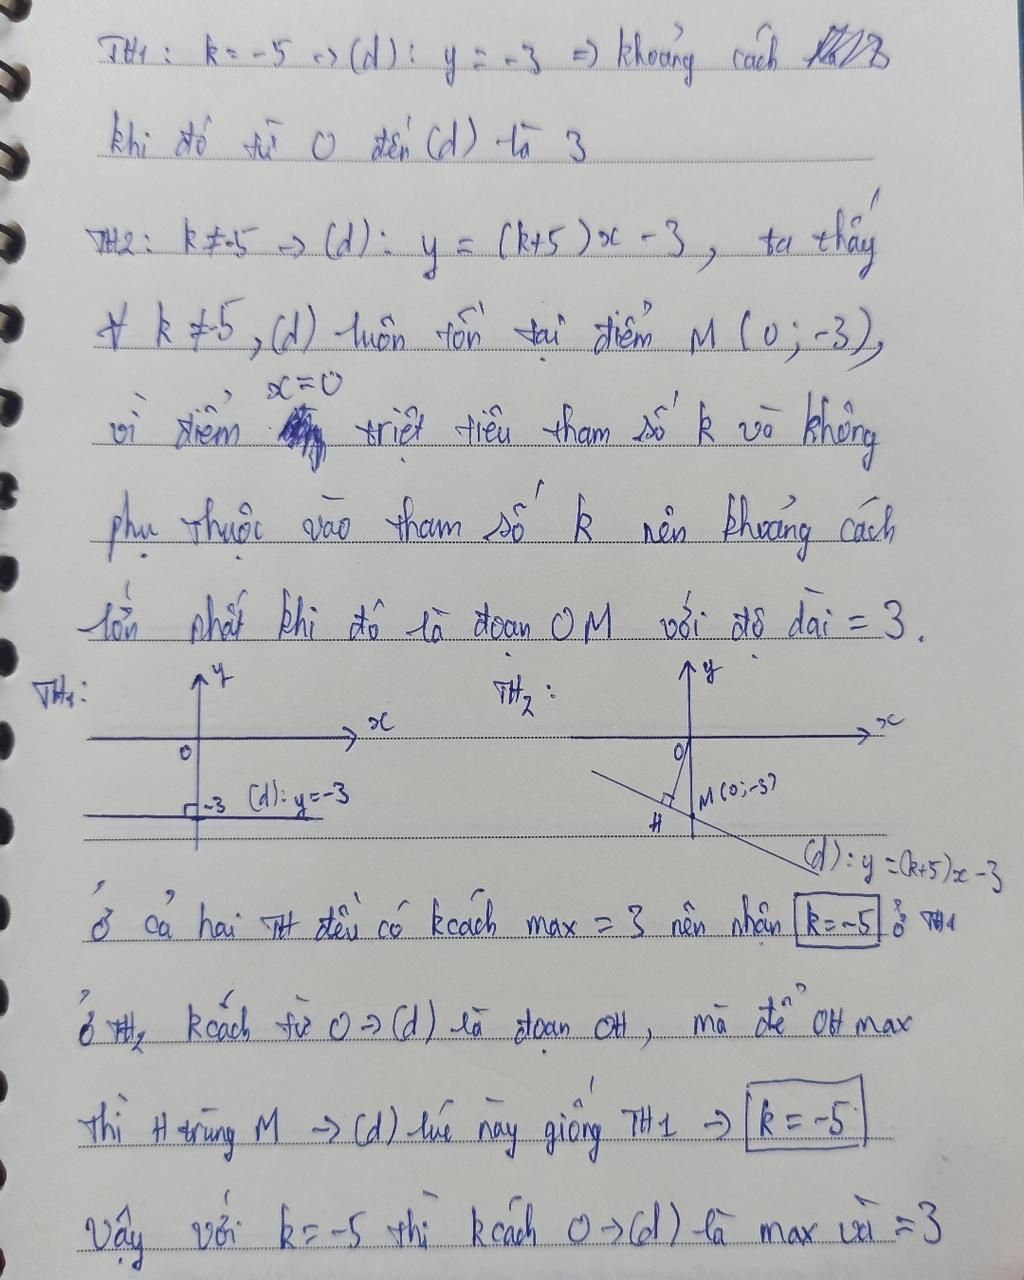 TH1: k = -5 → (d): y = -3 ⇒ khoảng cách
khi đó từ O đến (d) là 3
TH2: k ≠ -5 → (d): y = (k+5)x - 3, ta thấy
∀ k ≠ -5, (d) luôn tồn tại điểm M (0; -3),
x = 0
vì điểm triệt tiêu tham số k và không
phụ thuộc vào tham số k nên khoảng cách
lớn nhất khi đó là đoạn OM với độ dài = 3.
TH1: y x O -3 (d): y = -3
TH2: y x O M(0;-3) H (d): y = (k+5)x - 3
ở cả hai TH đều có kcách max = 3 nên nhận k = -5 ở TH1
ở TH2 kcách từ O → (d) là đoạn OH, mà để OH max
thì H trùng M → (d) lúc này giống TH1 → k = -5
Vậy với k = -5 thì kcách O → (d) là max và = 3